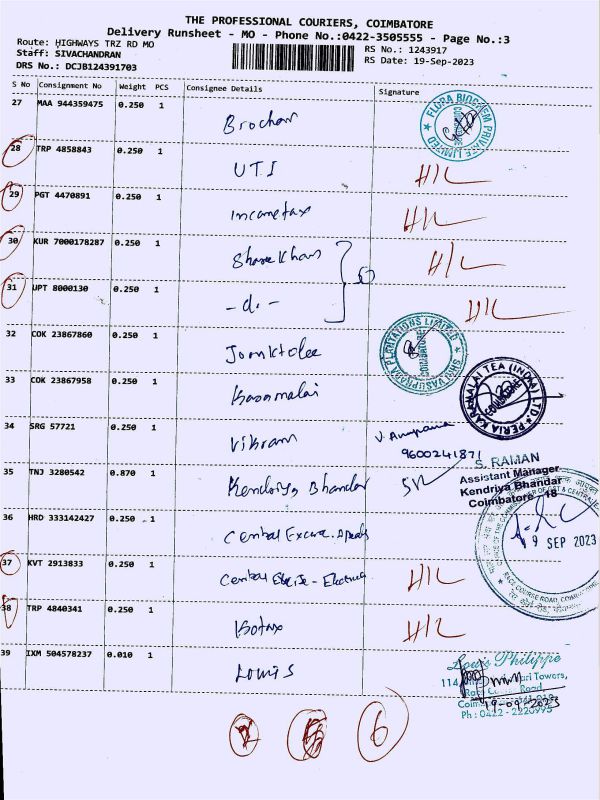 THE PROFESSIONAL COURIERS, COIMBATORE
Delivery Runsheet - MO - Phone No.:0422-3505555 - Page No.:3
Route: HIGHWAYS TRZ RD MO
Staff: SIVACHANDRAN
DRS No.: DCJB124391703
RS No.: 1243917
RS Date: 19-Sep-2023
S No Consignment No Weight PCS Consignee Details Signature
27 MAA 944359475 0.250 1
FLORA BIOCHEM PRIVATE LIMITED
28 TRP 4858843 0.250 1 UTI H/L
29 PGT 4470891 0.250 1 Incometax H/L
30 KUR 7000178287 0.250 1 Sharekhan H/L
31 UPT 8000130 0.250 1 -d.- H/L
32 COK 23867860 0.250 1
PLANTATIONS LIMITED
33 COK 23867958 0.250 1
PERIA KARAMALAI TEA (INDIA) LTD
COIMBATORE
34 SRG 57721 0.250 1 Vikram
9600241871
35 TNJ 3280542 0.870 1 Kendriya Bhandar
S. RAMAN
Assistant Manager
Kendriya Bhandar
Coimbatore - 18
36 HRD 333142427 0.250 1 Central
9 SEP 2023
RACE COURSE ROAD, COIMBATORE
37 KVT 2913833 0.250 1 Central H/L
38 TRP 4840341 0.250 1 H/L
39 IXM 504578237 0.010 1 Louis
Louis Philippe
114, Towers,
Race Road,
19-09-2023
Ph : 0422 - 2220995
6